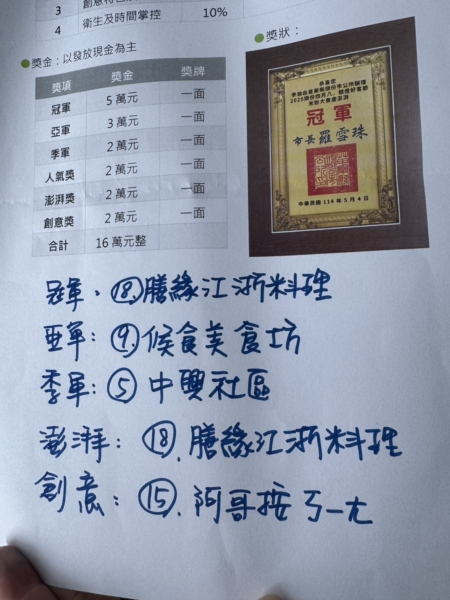 3
4 衛生及時間掌控 10%
●獎金：以發放現金為主
獎項 獎金 獎牌
冠軍 5 萬元 一面
亞軍 3 萬元 一面
季軍 2 萬元 一面
人氣獎 2 萬元 一面
澎湃獎 2 萬元 一面
創意獎 2 萬元 一面
合計 16 萬元整
●獎狀：
恭喜您
米粉大賽慶澎湃
冠軍
市長羅雪珠
中華民國 114 年 5 月 4 日
冠軍：⑱.膳緣江浙料理
亞軍：⑨.候食美食坊
季軍：⑤ 中興社區
澎湃：⑱.膳緣江浙料理
創意：⑮.阿哥接ㄎㄧㄤ